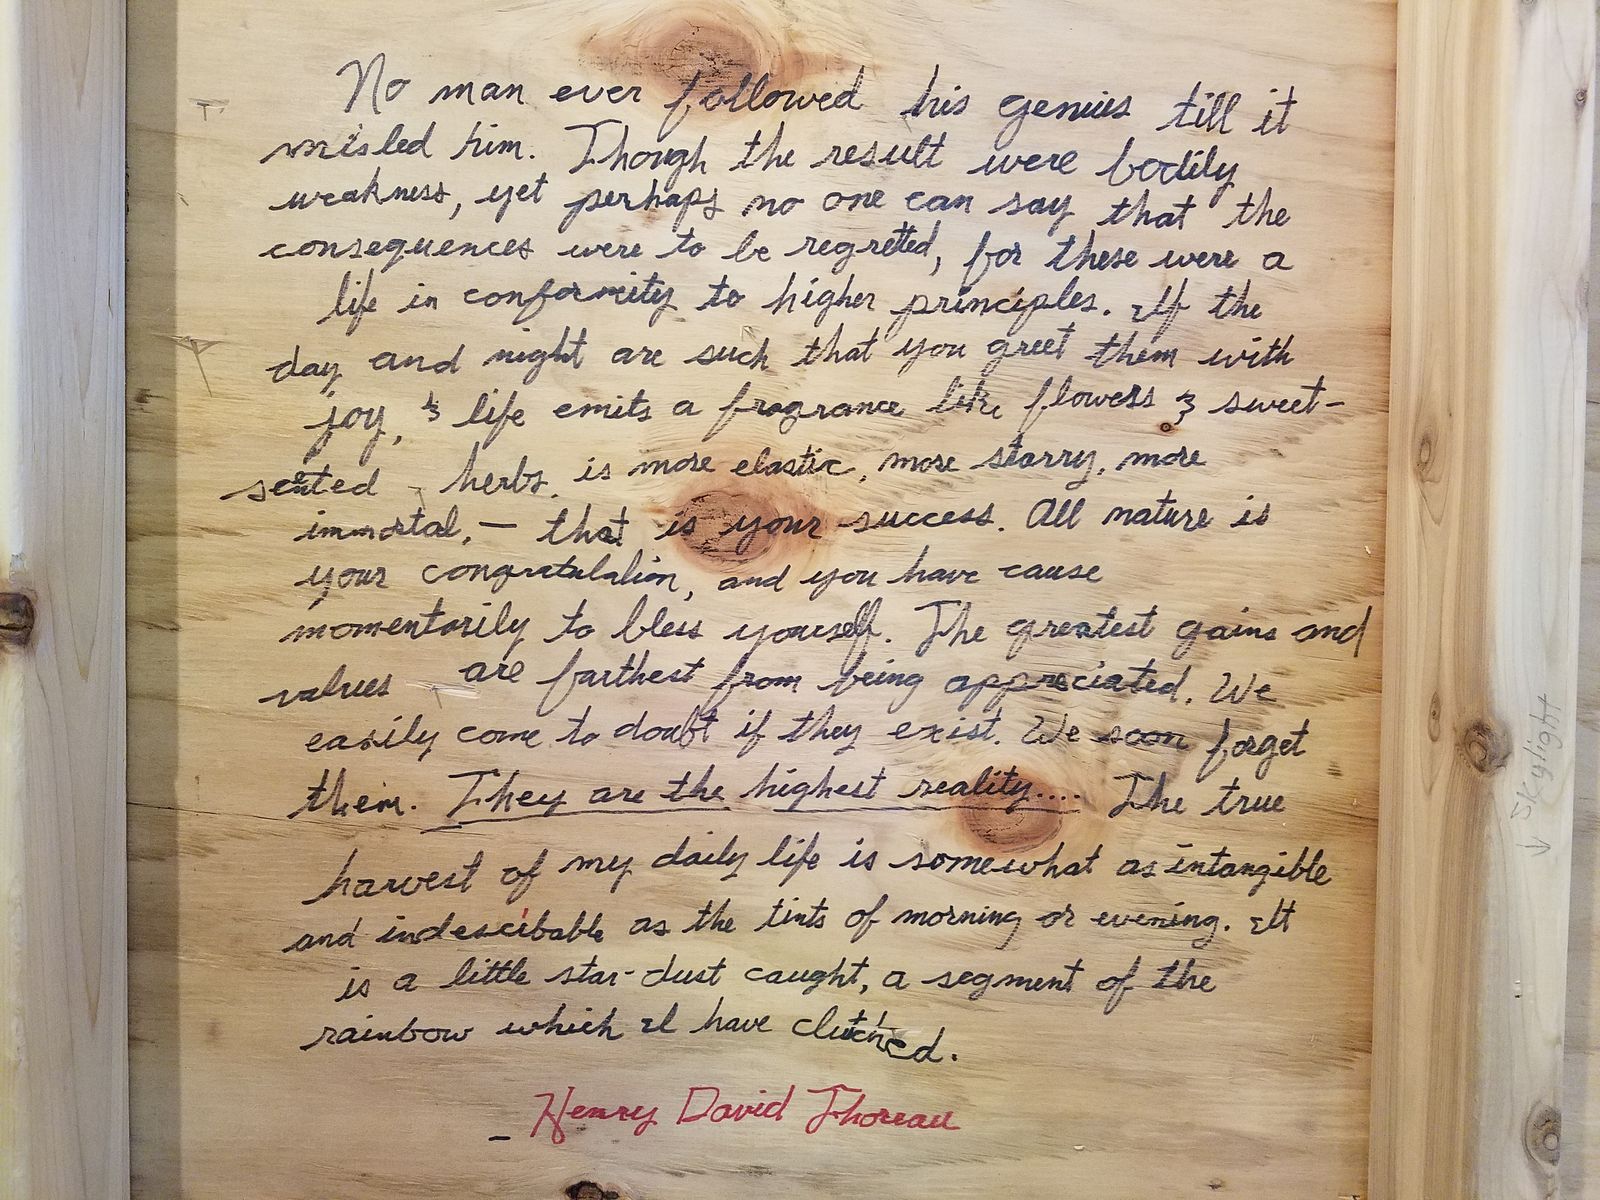 No man ever followed his genius till it
misled him. Though the result were bodily
weakness, yet perhaps no one can say that the
consequences were to be regretted, for these were a
life in conformity to higher principles. If the
day and night are such that you greet them with
joy, & life emits a fragrance like flowers & sweet-
scented - herbs, is more elastic, more starry, more
immortal, — that is your success. All nature is
your congratulation, and you have cause
momentarily to bless yourself. The greatest gains and
values are farthest from being appreciated. We
easily come to doubt if they exist. We soon forget
them. They are the highest reality.... The true
harvest of my daily life is somewhat as intangible
and indescibable as the tints of morning or evening. It
is a little star-dust caught, a segment of the
rainbow which I have clutched.
- Henry David Thoreau
↓ Skylight